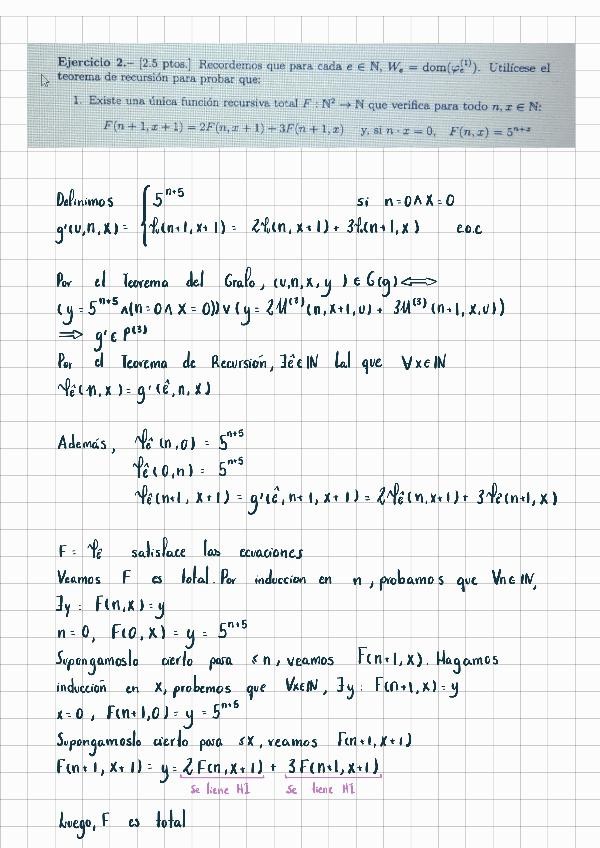 Ejercicio 2.– [2.5 ptos.] Recordemos que para cada e ∈ ℕ, W_e = dom(φ_e^(1)). Utilícese el
teorema de recursión para probar que:
1. Existe una única función recursiva total F : ℕ² → ℕ que verifica para todo n, x ∈ ℕ:
F(n + 1, x + 1) = 2F(n, x + 1) + 3F(n + 1, x) y, si n · x = 0, F(n, x) = 5^(n+x)
Definimos
5^(n+5) si n=0 ∧ x=0
g'(u,n,x) = { φ(n+1, x+1) = 2φ(n, x+1) + 3φ(n+1, x) e.o.c
Por el Teorema del Grafo, (u,n,x,y) ∈ G(g) ⟺
(y = 5^(n+5) ∧ (n=0 ∧ x=0)) ∨ (y = 2U^(3)(n, x+1, u) + 3U^(3)(n+1, x, u))
⟹ g' ∈ P^(3)
Por el Teorema de Recursión, ∃ê ∈ ℕ tal que ∀x ∈ ℕ
φ_ê(n,x) = g'(ê, n, x)
Además, φ_ê(n,0) = 5^(n+5)
φ_ê(0,n) = 5^(n+5)
φ_ê(n+1, x+1) = g'(ê, n+1, x+1) = 2φ_ê(n, x+1) + 3φ_ê(n+1, x)
F = φ_ê satisface las ecuaciones
Veamos F es total. Por induccion en n, probamos que ∀n ∈ ℕ,
∃y : F(n,x) = y
n = 0, F(0, x) = y = 5^(n+5)
Supongamoslo cierto para ≤ n, veamos F(n+1, x). Hagamos
induccion en x, probemos que ∀x ∈ ℕ, ∃y : F(n+1, x) = y
x = 0, F(n+1, 0) = y = 5^(n+5)
Supongamoslo cierto para ≤ x, veamos F(n+1, x+1)
F(n+1, x+1) = y = 2F(n, x+1) + 3F(n+1, x+1)
Se tiene HI Se tiene HI
Luego, F es total